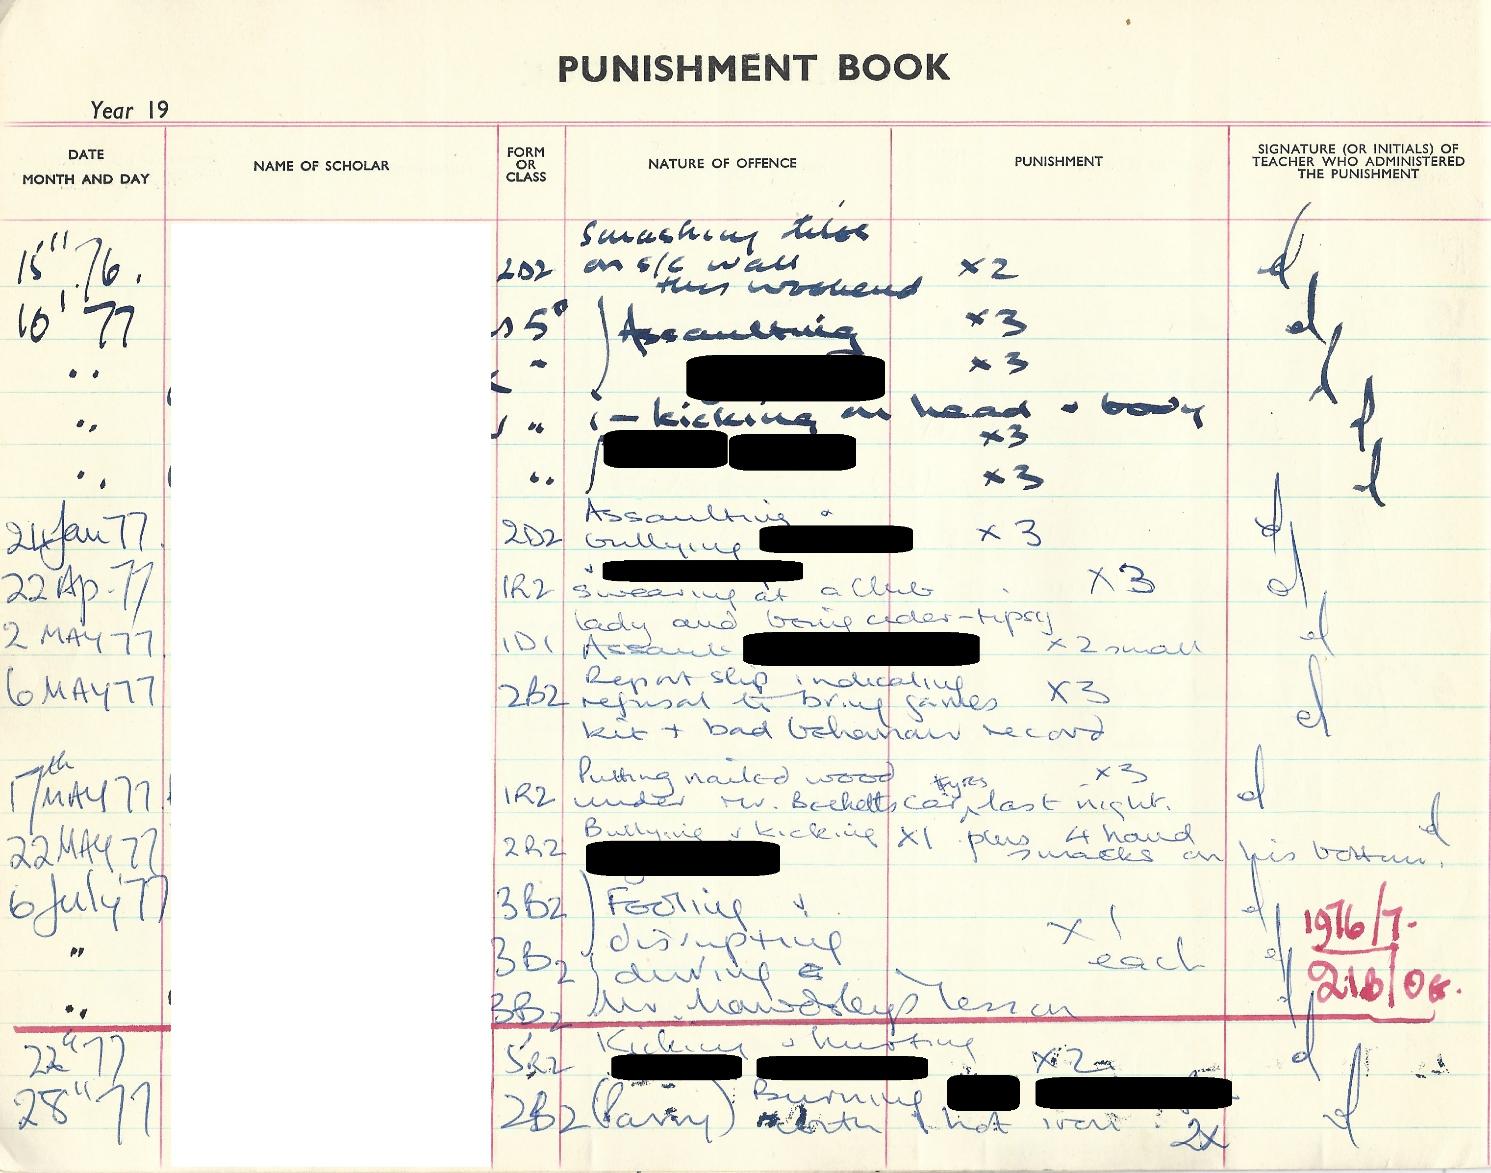 PUNISHMENT BOOK
Year 19
DATE
MONTH AND DAY
NAME OF SCHOLAR
FORM
OR
CLASS
NATURE OF OFFENCE
PUNISHMENT
SIGNATURE (OR INITIALS) OF
TEACHER WHO ADMINISTERED
THE PUNISHMENT
Smashing tiles
15 " 76. 2D2 on S/C wall x2 d
this weekend
10 ' 77 5" Assaulting x3 d
" " x3 d
- kicking on head & body
" " x3 d
" " x3 d
24 Jan 77. 2D2 Assaulting &
bullying x3 d
22 Ap. 77 1R2 swearing at a Club x3 d
lady and being cider-tipsy
2 MAY 77 1D1 Assault x2 small d
6 MAY 77 2B2 Report slip indicating
refusal to bring games x3 d
kit + bad behaviour record
17th MAY 77 1R2 Putting nailed wood x3 d
under Mr. Becketts car tyres last night.
22 MAY 77 2R2 Bullying & kicking x1 plus 4 hand d
smacks on his bottom.
6 July 77 3B2 Fooling & d
disrupting x1
" 3B2 during each d
" 3B2 Mr. Mawdsleys lesson d
1976/7.
22 " 77 5R2 Kicking & hurting x2 d
28 " 77 2B2 Burning
with hot iron. 2x d